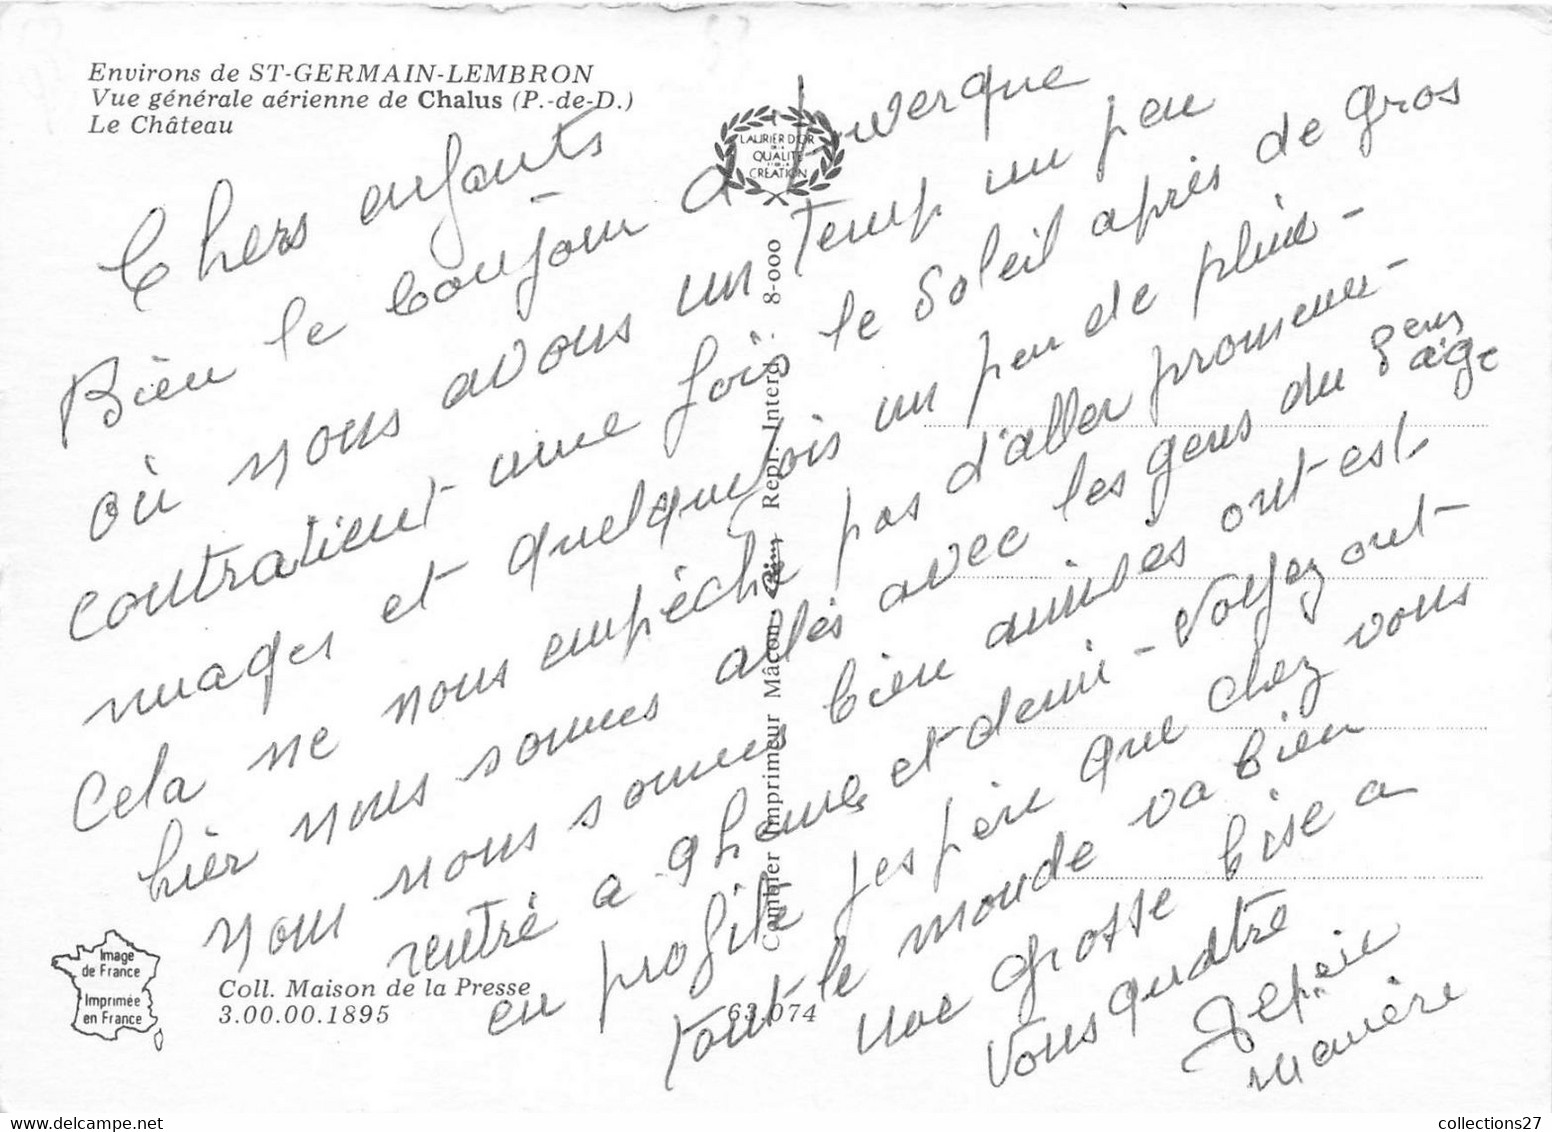 Environs de ST-GERMAIN-LEMBRON
Vue générale aérienne de Chalus (P.-de-D.)
Le Château
LAURIER D'OR
DE LA
QUALITÉ
ET DE LA
CRÉATION
Chers enfants
Bien le bonjour d'Auvergne
où nous avons un temp un peu
contratient une fois le soleil après de gros
nuages et quelquefois un peu de pluie -
Cela ne nous empêche pas d'aller promener -
hier nous sommes allés avec les gens du
age
nous nous sommes bien amusés ont-est-
rentré a 9 heures et demi - voyez ont-
en profite j'espère que chez vous
tout le monde va bien
une grosse bise a
vous quatre
Pépère
Mémère
Combier Imprimeur Mâcon Repr. Interd. 8-000
Image
de France
Imprimée
en France
Coll. Maison de la Presse
3.00.00.1895
63.074
collections27